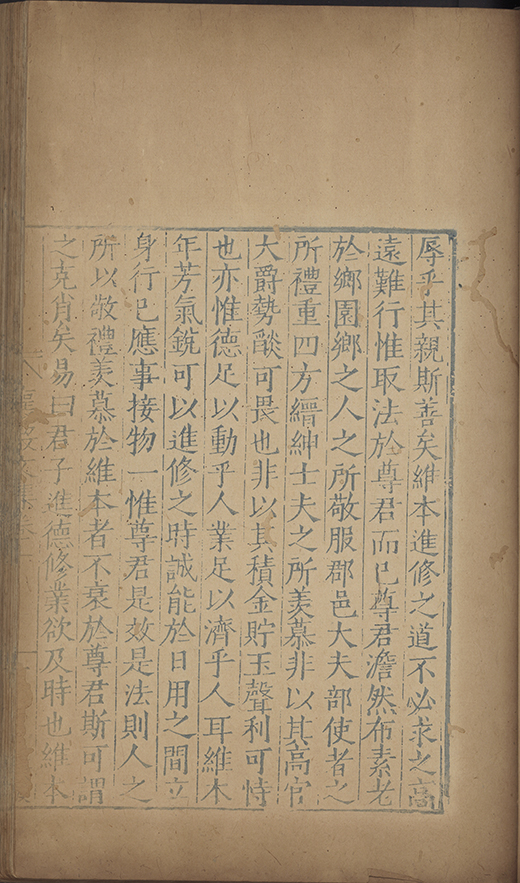 辱乎其親斯善矣維本進修之道不必求之高
遠難行惟取法於尊君而已尊君澹然布素老
於鄉園鄉之人之所敬服郡邑大夫部使者之
所禮重四方縉紳士夫之所羡慕非以其高官
大爵勢燄可畏也非以其積金貯玉聲利可恃
也亦惟德足以動乎人業足以濟乎人耳維本
年芳氣銳可以進修之時誠能於日用之間立
身行己應事接物一惟尊君是效是法則人之
所以敬禮羡慕於維本者不衰於尊君斯可謂
之克肖矣易曰君子進德修業欲及時也維本